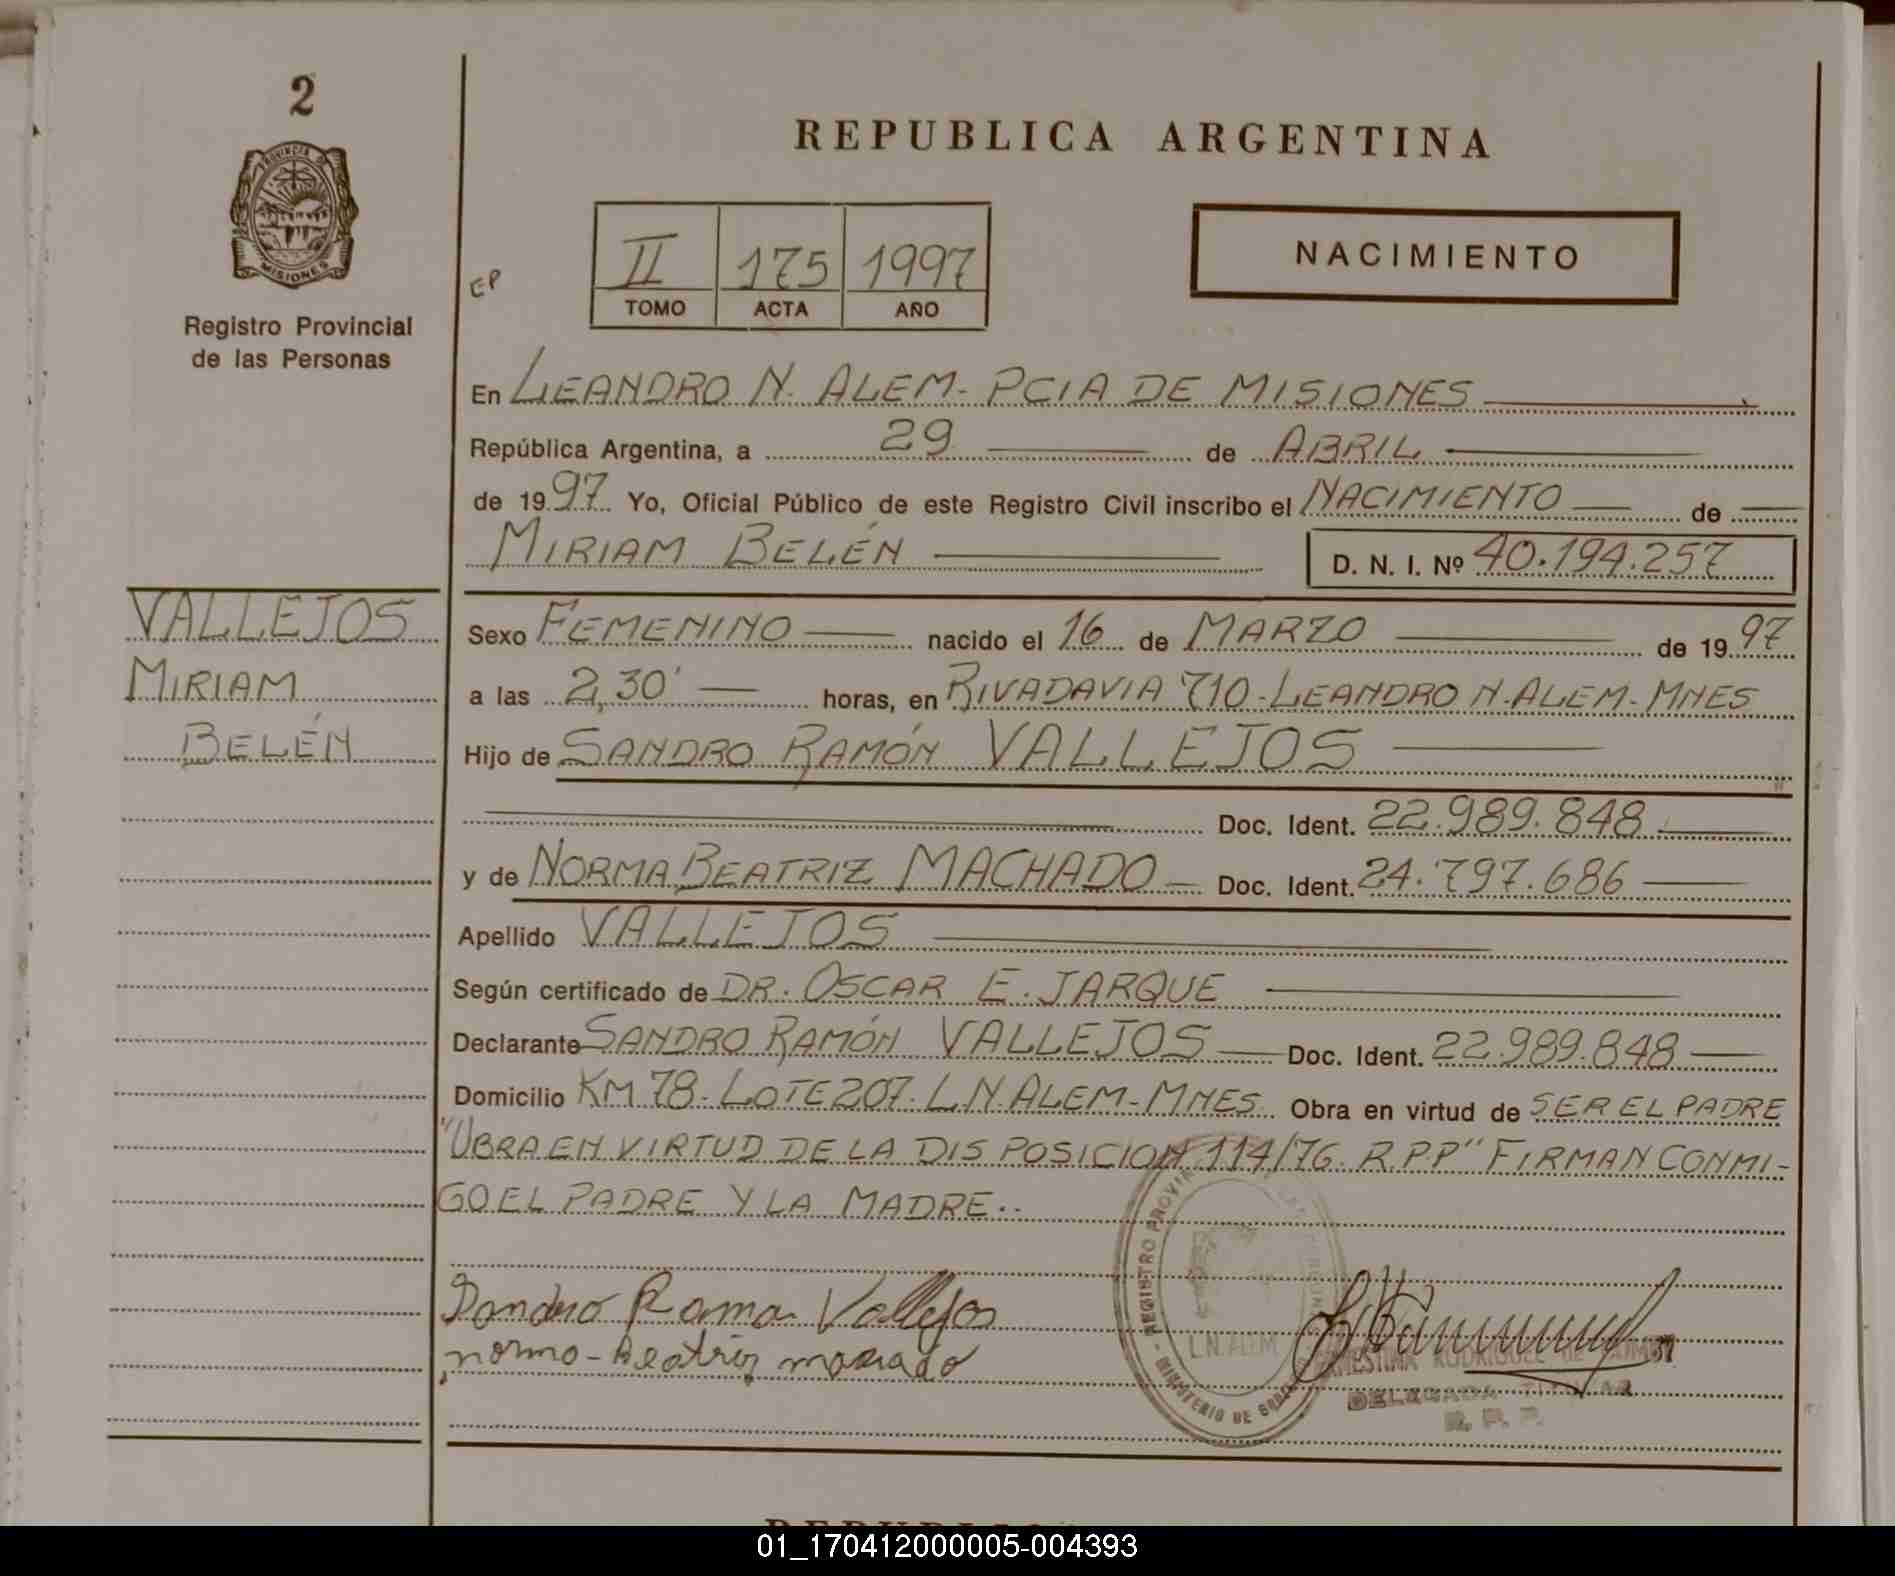 2
PROVINCIA DE
MISIONES
Registro Provincial
de las Personas
VALLEJOS
MIRIAM
BELÉN
REPUBLICA ARGENTINA
EP
II 175 1997
TOMO ACTA AÑO
NACIMIENTO
En LEANDRO N. ALEM- PCIA DE MISIONES
República Argentina, a 29 de ABRIL
de 1997 Yo, Oficial Público de este Registro Civil inscribo el NACIMIENTO de
MIRIAM BELÉN D. N. I. Nº 40.194.257
Sexo FEMENINO nacido el 16 de MARZO de 1997
a las 2,30' horas, en RIVADAVIA 710-LEANDRO N. ALEM-MNES
Hijo de SANDRO RAMÓN VALLEJOS
Doc. Ident. 22.989.848
y de NORMA BEATRIZ MACHADO Doc. Ident. 24.797.686
Apellido VALLEJOS
Según certificado de DR. OSCAR E. JARQUE
Declarante SANDRO RAMÓN VALLEJOS Doc. Ident. 22.989.848
Domicilio KM 78-LOTE 207. L.N. ALEM-MNES Obra en virtud de SER EL PADRE
"OBRA EN VIRTUD DE LA DISPOSICION 114/76 R.P.P" FIRMAN CONMI-
GO EL PADRE Y LA MADRE..
REGISTRO PROVIN
L.N. ALEM
MINISTERIO DE GOB
Sandro Ramon Vallejos
norma-Beatriz machado
RODRIGUEZ DE
DELEGADA TITULAR
R. P. P.
01_170412000005-004393